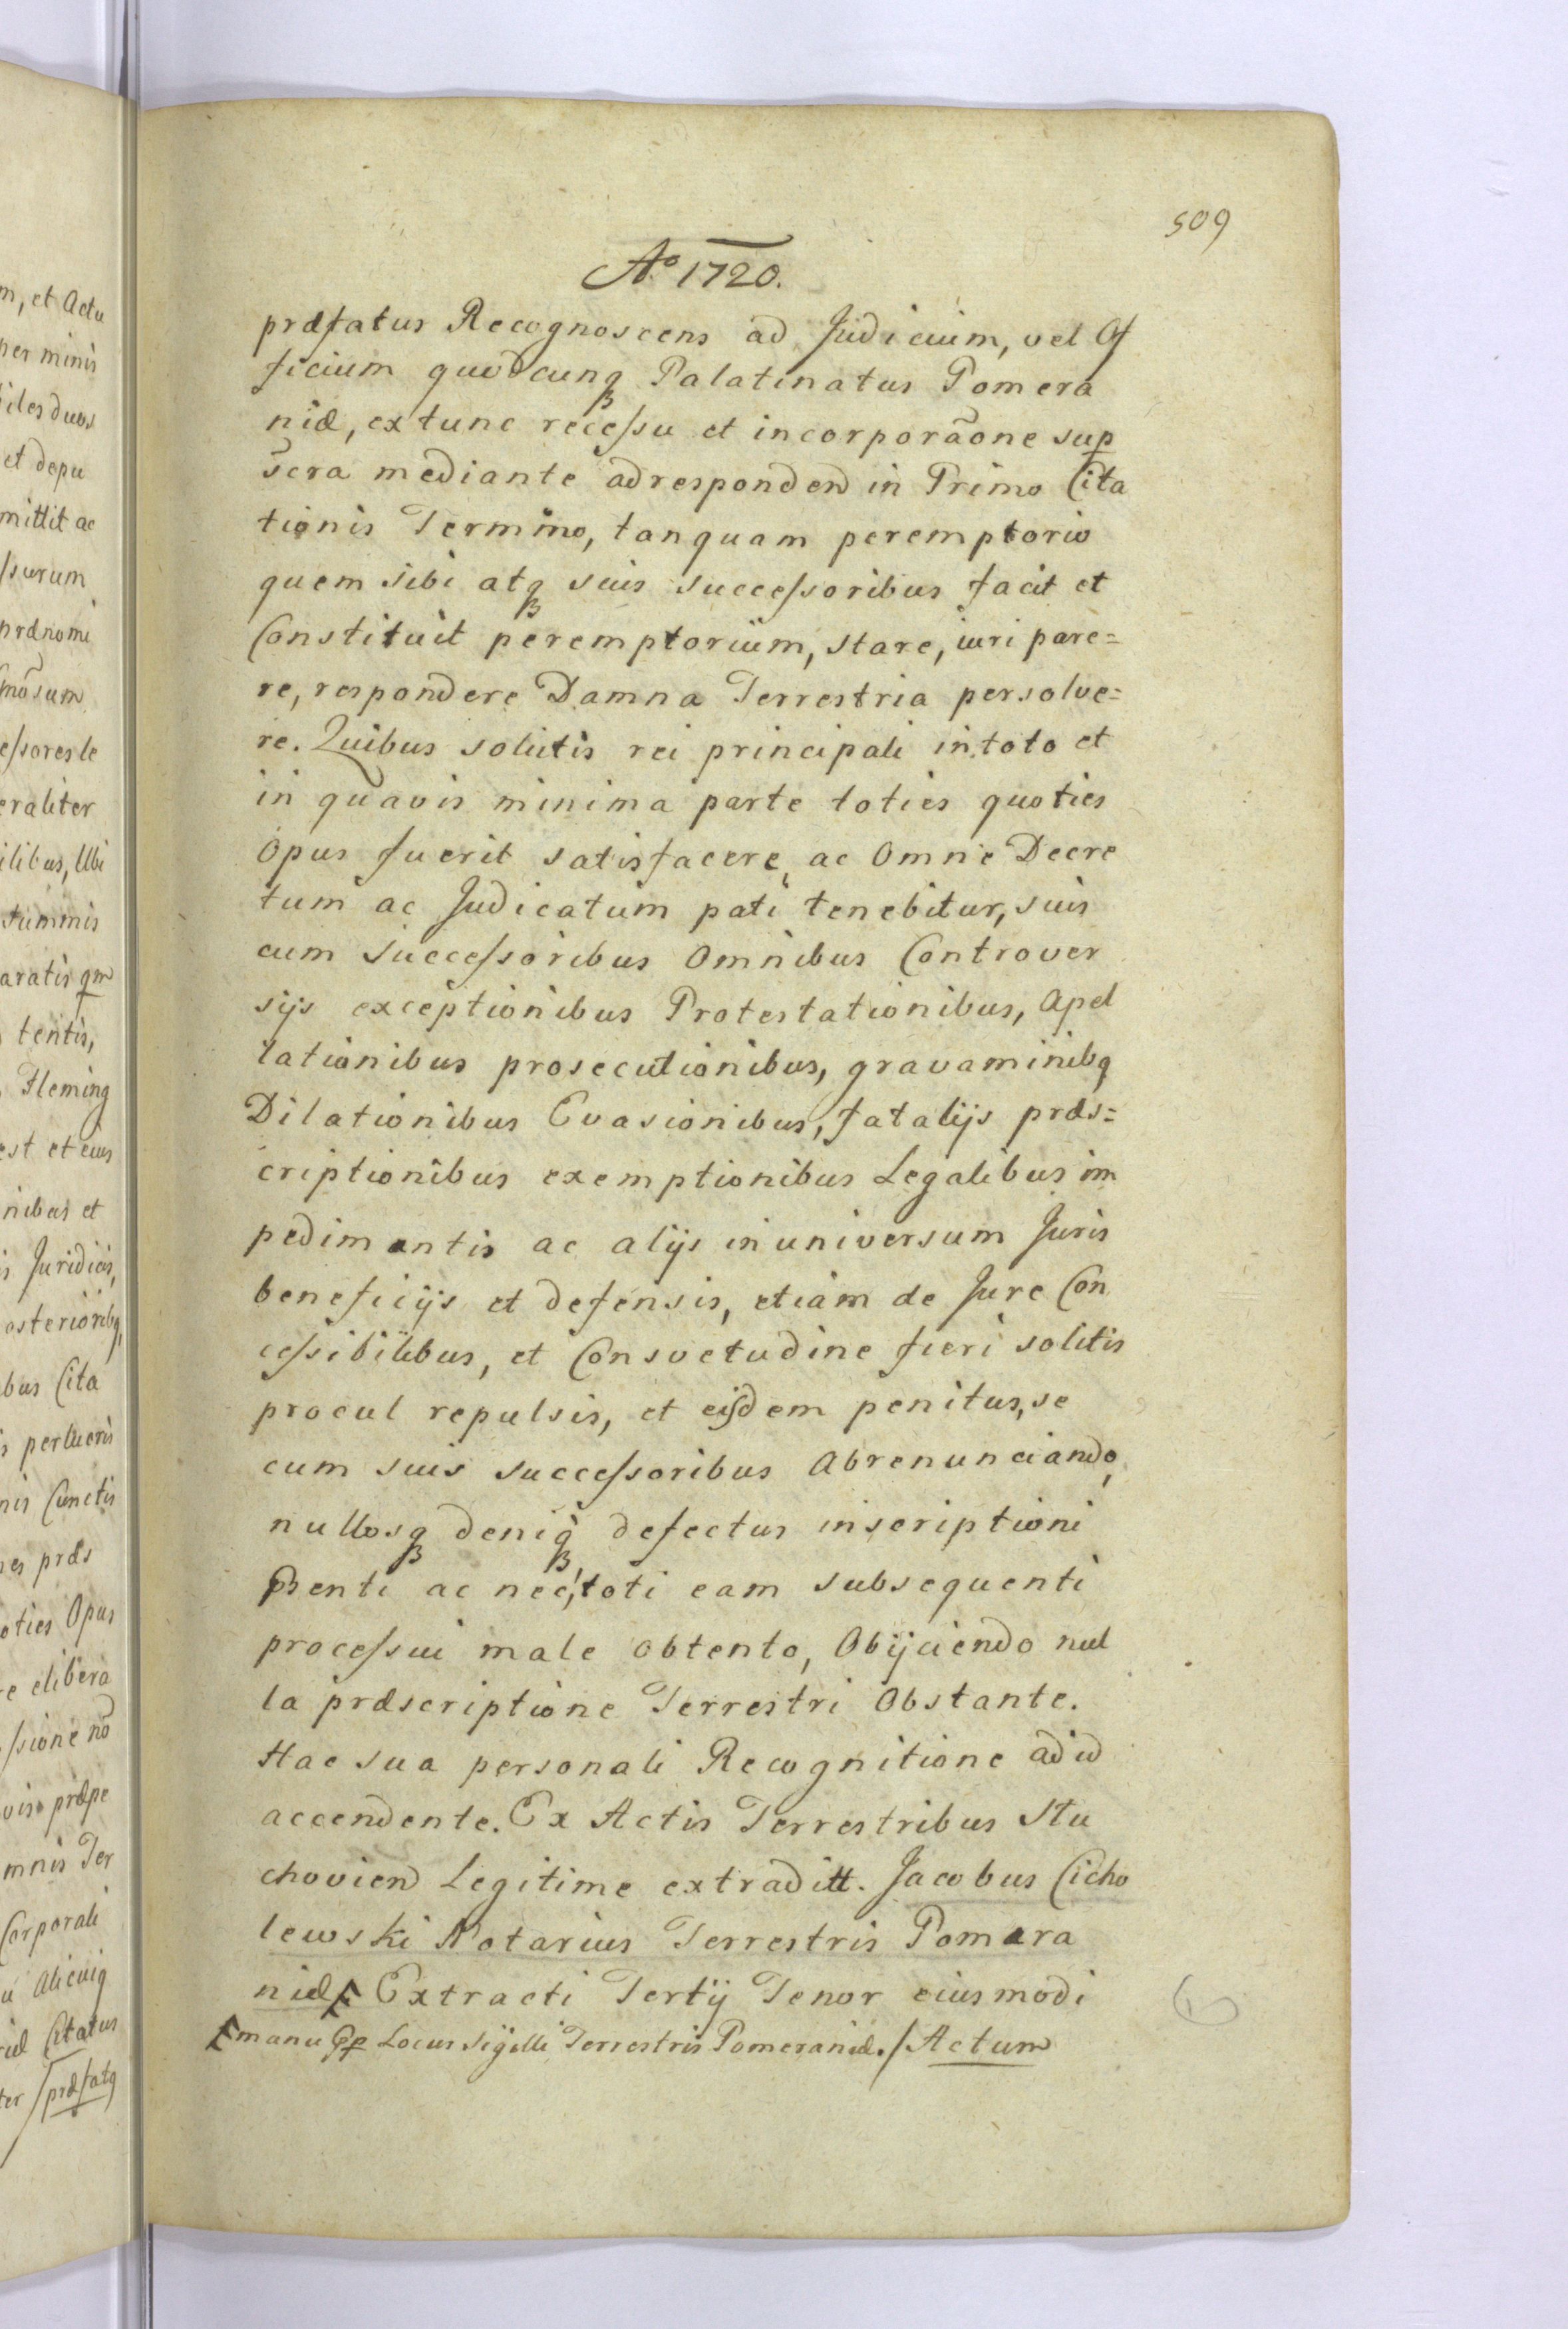 509
Aº 1720.
præfatus Recognoscens ad Judicium, vel Of
ficium quodcunq Palatinatus Pomera
niæ, ex tunc recessu et incorporãone sup
sera mediante adrespondend in Primo Cita
tionis Termino, tanquam peremptorio
quem sibi atq suis successoribus facit et
Constituit peremptorium, stare, iuri pare=
re, respondere Damna Terrestria persolve=
re. Quibus solutis rei principali in toto et
in quavis minima parte toties quoties
Opus fuerit satisfacere, ac Omne Decre
tum ac Judicatum pati tenebitur, suis
cum successoribus Omnibus Controver
sijs exceptionibus Protestationibus, Apel
lationibus prosecutionibus, gravaminibq
Dilationibus Evasionibus, fatalijs præs=
criptionibus exemptionibus Legalibus im
pedimentis ac alijs in universum Juris
beneficijs et defensis, etiam de Jure Con
cessibilibus, et Consvetudine fieri solitis
procul repulsis, et eisdem penitus, se
cum suis successoribus Abrenunciando,
nullosq deniq defectus inscriptioni
pẞenti ac nec, toti eam subsequenti
processui male obtento, Obijciendo nul
la præscriptione Terrestri Obstante.
Hac sua personali Recognitione ad id
accendente. Ex Actis Terrestribus Stu
choviend Legitime extraditt. Jacobus Cicho
lewski Notarius Terrestris Pomera
niæ Extracti Tertij Tenor eiusmodi
manu pp Locus Sigilli Terrestris Pomeraniæ. / Actum
m, et Actu
per minis
iles duos
et depu
mittit ac
ssurum
prænomi
essores le
eraliter
ilibus, Ubi
summis
aratis qm
tentis,
Fleming
est et eius
nibus et
s Juridicis,
osterioribq,
bus Cita
s perlucris
nis Cunctis
es præs
oties Opus
re elibera
ssione nõ
viso præpe
mnis Ter
Corporali
u Alicuiq
Citatus
ter / præfatq